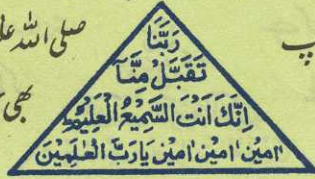 صلی اللہ علی
رَبَّنَا
تَقَبَّلْ مِنَّا
اِنَّكَ اَنْتَ السَّمِيْعُ الْعَلِيْمُ
اٰمین اٰمین اٰمین یَارَبَّ الْعٰلَمِیْنَ
بھی